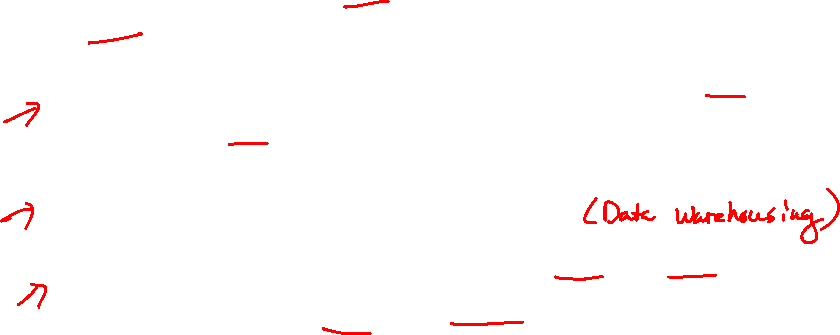 (Data Warehousing)